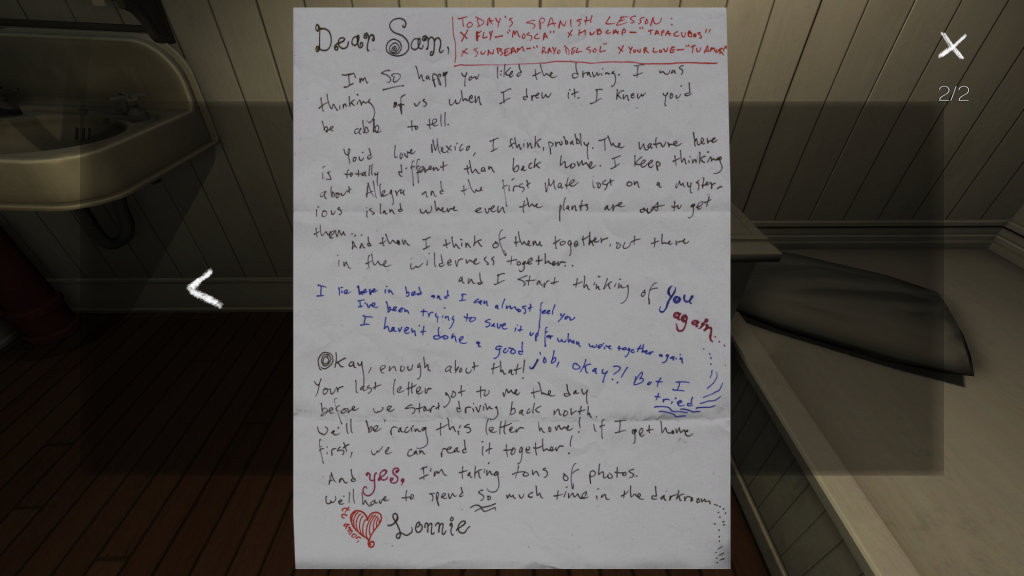 Dear Sam,
TODAY'S SPANISH LESSON:
X FLY-"MOSCA" X HUBCAP-"TAPACUBOS"
X SUNBEAM-"RAYO DEL SOL" X YOUR LOVE-"TU AMOR"
I'm SO happy you liked the drawing. I was
thinking of us when I drew it. I knew you'd
be able to tell.
You'd love Mexico, I think, probably. The nature here
is totally different than back home. I keep thinking
about Allegra and the First Mate lost on a myster-
ious island where even the plants are out to get
them...
And then I think of them together. out there
in the wilderness together..
and I start thinking of you
again...
I lie here in bed and I can almost feel you
I've been trying to save it up for when we're together again
I haven't done a good job, okay?! But I
tried
Okay, enough about that!
Your last letter got to me the day
before we start driving back north.
We'll be racing this letter home! if I get home
first, we can read it together!
And yes, I'm taking tons of photos.
We'll have to spend so much time in the darkroom...
Lonnie
2/2